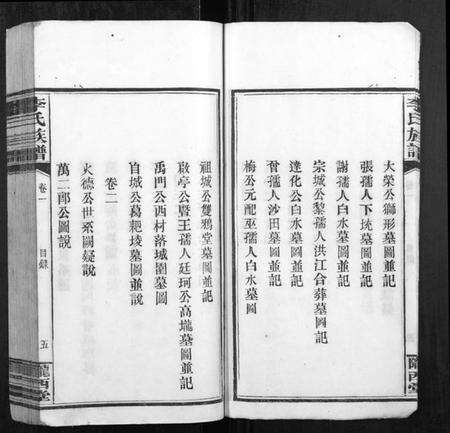 李氏族譜
大榮公獅形墓圖並記
張孺人下垅墓圖並記
謝孺人白水墓圖並記
宗城公黎孺人洪江合葬墓圖記
達化公白水墓圖並記
曾孺人沙田墓圖並記
梅公元配巫孺人白水墓圖
隴西堂
祖城公雙鴉堂墓圖並記
啟亭公暨王孺人廷珂公高壠墓圖並記
禹門公西村落城圍墓圖
自城公葛耙堎墓圖並說
卷二
火德公世系圖疑說
萬二郎公圖說
李氏族譜
卷一
目錄
五
隴西堂